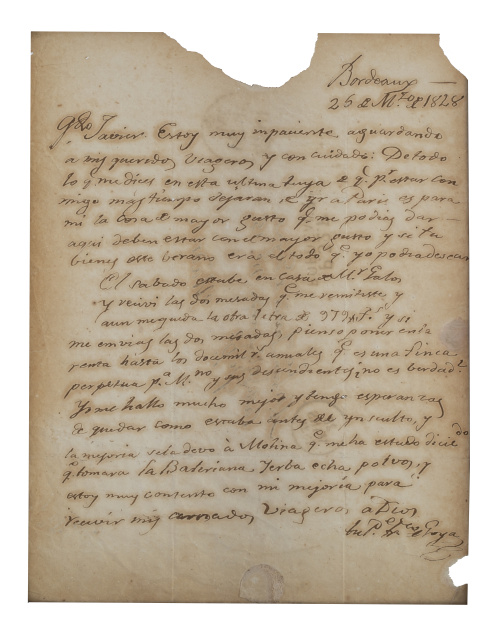 Bordeaux —
26 de M.zo de 1828
qdo Javier. Estoy muy inpaciente aguardando
a mis queridos viageros y con cuidado: De todo
lo q. me dices en esta ultima tuya de q.e p.r estar con
migo mas tiempo dejaran de yr a Paris es para
mi la cosa de mayor gusto q.e me podias dar —
aqui deben estar con el mayor gusto y si tu
bienes este berano era el todo q.e yo podia desear
El sabado estube en casa de M.r Galos
y recivi las dos mesadas q.e me remitiste y
aun me queda la otra letra de 979 f.s y si
me envias las dos mesadas, pienso poner en la
renta hasta los doce mil r.s anuales q.e es una finca
perpetua p.a M.no y sus descendientes ¿no es berdad?
Yo me hallo mucho mejor y tengo esperanzas
de quedar como estaba antes del ynsulto, y
la mejoria se la devo à Molina q.e me ha estado diciendo
q.e tomara la Baleriana, Yerba echa polvos, y
estoy muy contento con mi mejoria para
recivir mis amados viageros a Dios
tu P.e Fr.co de Goya